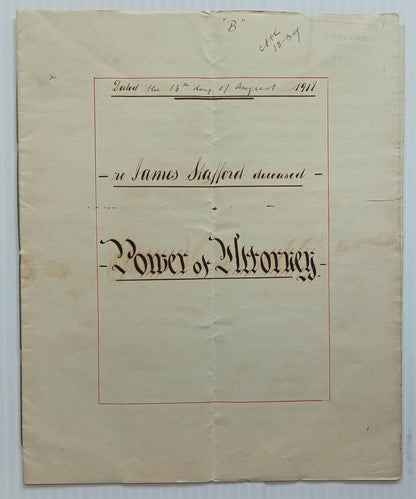 "B"
13·3·9
Dated the 13th day of August 1918
- re James Stafford deceased -
- Power of Attorney -